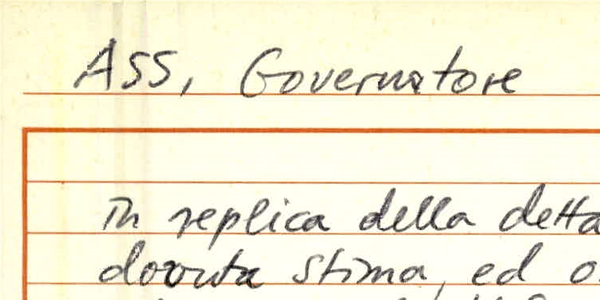 ASS, Governatore
in replica della detta
dovuta stima, ed